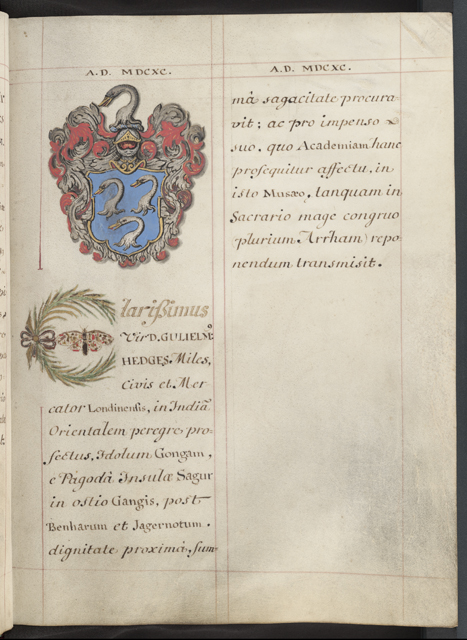 A.D. MDCXC.
Clarissimus
Vir D. GULIELMº
HEDGES Miles,
Civis et Mer-
cator Londinensis, in Indiâ
Orientalem peregre pro-
fectus, Idolum Gongam,
e Pagodâ Insulæ Sagur
in ostio Gangis, post
Benharum et Jagernotum,
dignitate proximâ, sum-
A.D. MDCXC.
mâ sagacitate procura-
vit; ac pro impenso
suo, quo Academiam hanc
prosequitur affectu, in
isto Musæo, tanquam in
Sacrario mage congruo
(plurium Arrham) repo-
nendum transmisit.